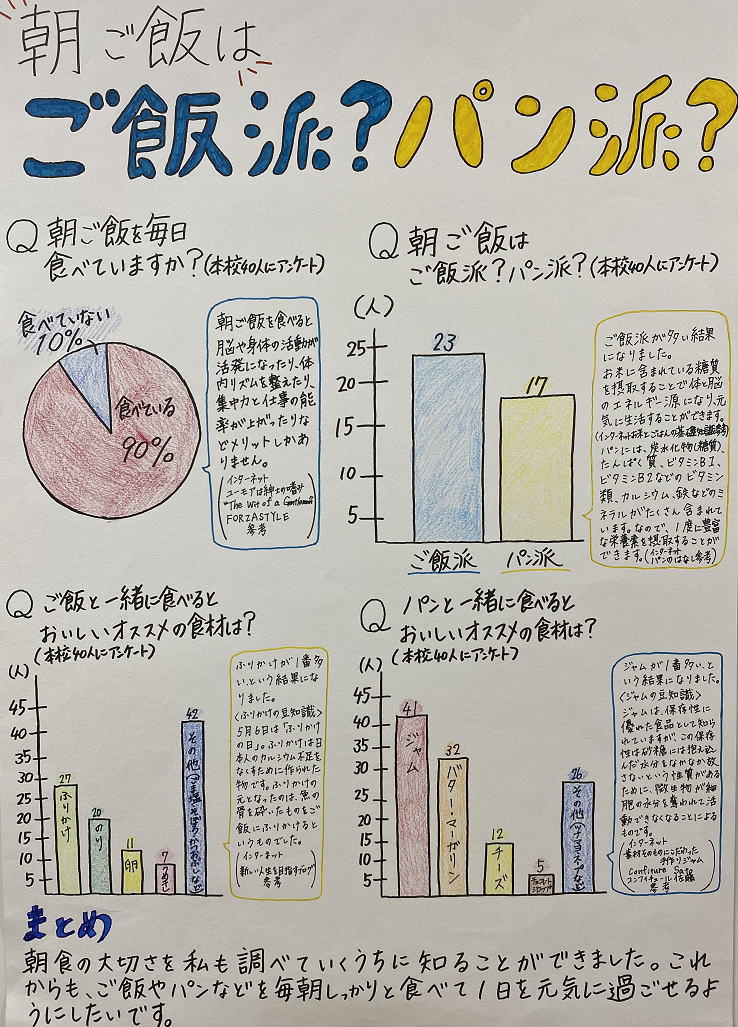 朝ご飯は
ご飯派?パン派?
Q 朝ご飯を毎日
食べていますか?(本校40人にアンケート)
食べていない
10%
食べている
90%
朝ご飯を食べると
脳や身体の活動が
活発になったり、体
内リズムを整えたり、
集中力と仕事の能
率が上がったりな
どメリットしかあ
りません。
インターネット
ユーモアは紳士の嗜み
"The Wit of a Gentleman"
FORZASTYLE
参考
Q 朝ご飯は
ご飯派?パン派?(本校40人にアンケート)
(人)
25
20
15
10
5
23
17
ご飯派
パン派
ご飯派が多い結果
になりました。
お米に含まれている糖質
を摂取することで体と脳
のエネルギー源になり、元
気に生活することができます。
(インターネットお米とごはんの基礎知識参考)
パンには、炭水化物(糖質)、
たんぱく質、ビタミンB1、
ビタミンB2などのビタミン
類、カルシウム、鉄などのミ
ネラルがたくさん含まれて
います。なので、1度に豊富
な栄養素を摂取することが
できます。(インターネット
パンのはなし参考)
Q ご飯と一緒に食べると
おいしいオススメの食材は?
(本校40人にアンケート)
(人)
45
40
35
30
25
20
15
10
5
27
ふりかけ
20
のり
11
卵
7
42
その他
ふりかけが1番多
い、という結果にな
りました。
〈ふりかけの豆知識〉
5月6日は「ふりかけ
の日」。ふりかけは日
本人のカルシウム不足を
なくすために作られた
物です。ふりかけの
元となったのは、魚の
骨を砕いたものをご
飯にふりかけるとい
うものでした。
インターネット
新しい人生を目指すブログ
参考
Q パンと一緒に食べると
おいしいオススメの食材は?
(本校40人にアンケート)
(人)
45
40
35
30
25
20
15
10
5
41
ジャム
32
バター・マーガリン
12
チーズ
5
チョコレート
シロップ
26
その他(ツナマヨネーズなど)
ジャムが1番多い、と
いう結果になりました。
〈ジャムの豆知識〉
ジャムは、保存性に
優れた食品として知ら
れていますが、この保存
性は砂糖には抱え込
んだ水分をなかなか放
さないという性質がある
ために、微生物が細
胞の水分を奪われて活
動できなくなることによる
ものです。
インターネット
素材そのものにこだわった
手作りジャム
Confiture Sato
コンフィチュール佐藤
参考
まとめ
朝食の大切さを私も調べていくうちに知ることができました。これ
からも、ご飯やパンなどを毎朝しっかりと食べて1日を元気に過ごせるよ
うにしたいです。